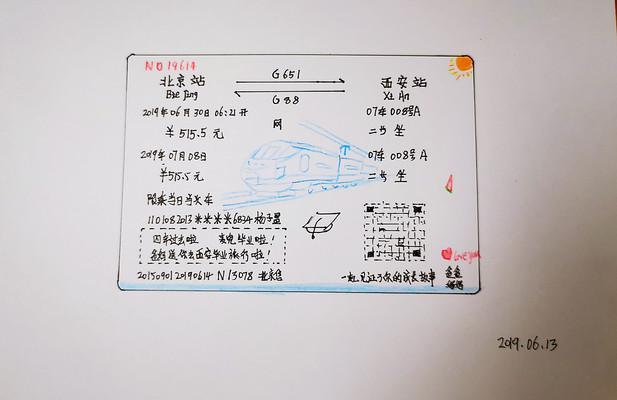 NO 19614
北京站 G651 西安站
Bei Jing G88 Xi An
2019年06月30日 06:21开 07车008号A
￥515.5元 网 二等坐
2019年07月08日 07车008号A
￥515.5元 二等坐
限乘当日当次车
1101082013米米米米683A
四年过去啦 毕业啦！
爸妈送你去西安毕业旅行啦！
2015090120190614 N13078
一起见证了你的成长故事
Love you
爸爸
妈妈
2019.06.13